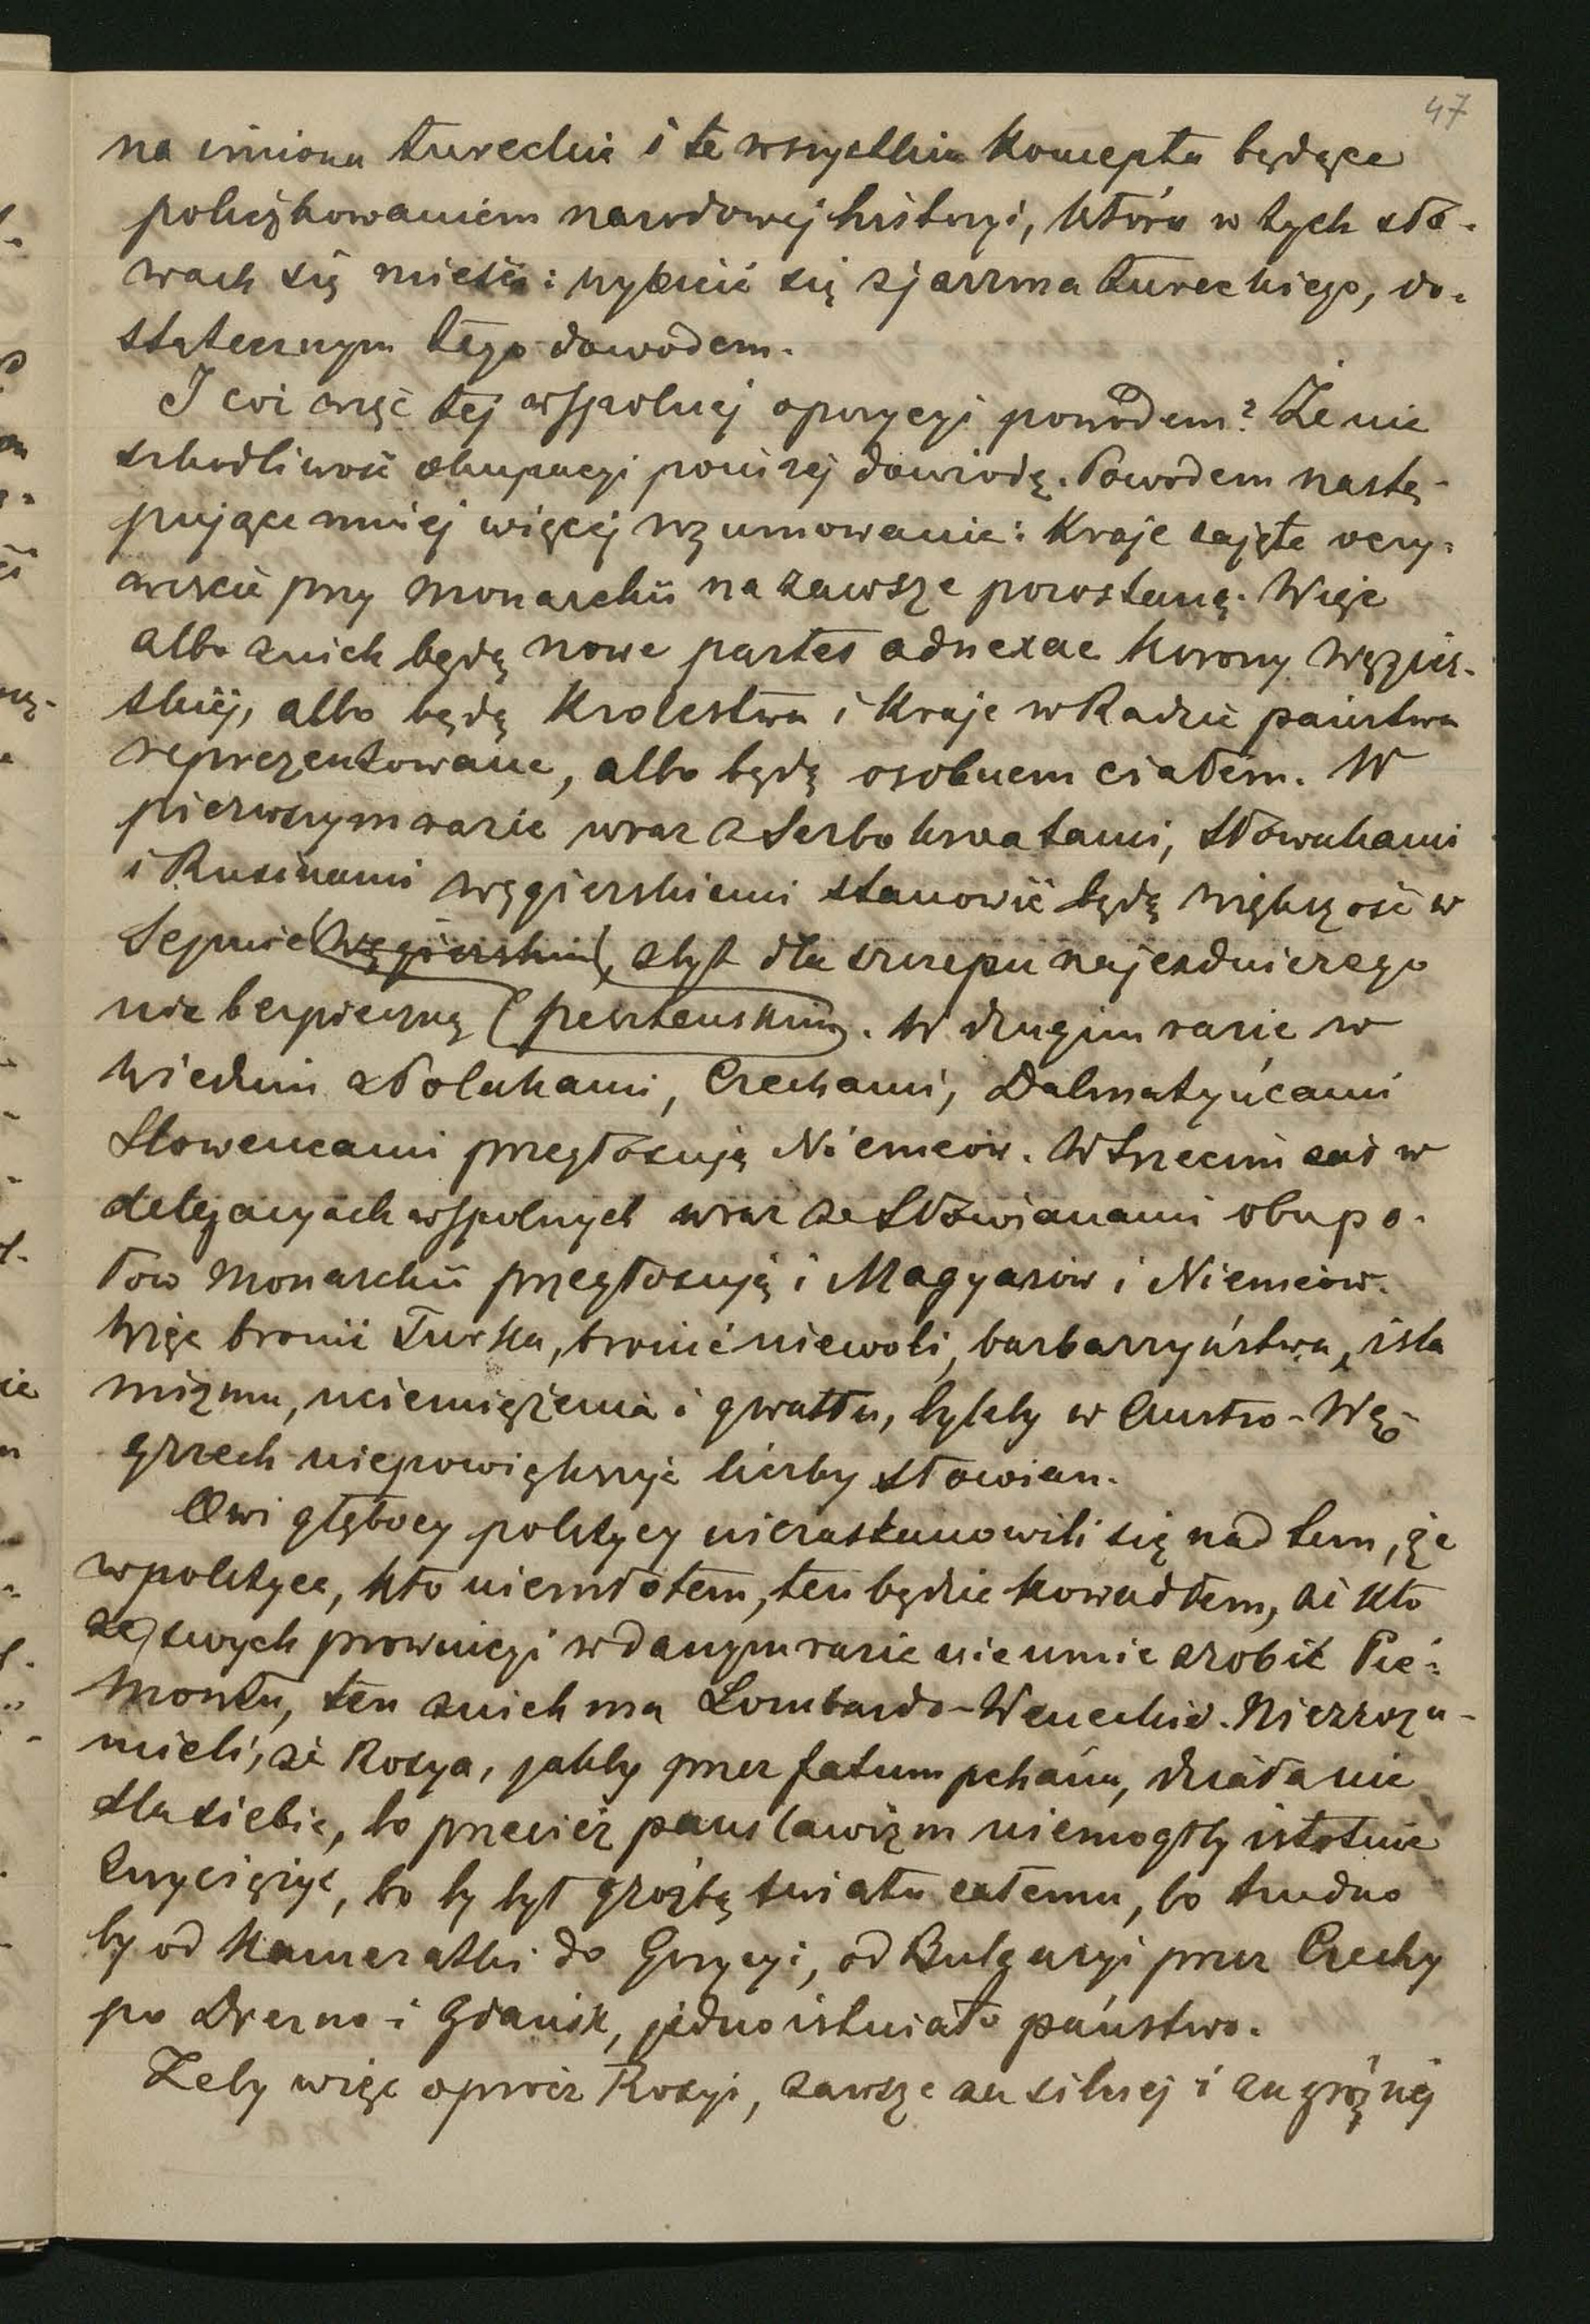 47
na imiona tureckie i te wszystkie koncepta będące
policzkowaniem narodowej historyi, która w tych sło-
wach się mieści: wybić się z jarzma tureckiego, do-
statecznym tego dowodem.
I coż więc tej wspolnej opozycyi powodem? Że nie
szkodliwość okupacyi poniżej dowiodę. Powodem nastę-
pujące mniej więcej rozumowanie: Kraje zajęte oczy-
wiscie przy Monarchii na zawsze pozostaną. Więc
albo z nich będą nowe partes adnexae Korony Węgier-
skiej, albo będą Krolestwa i Kraje w Radzie państwa
reprezentowane, albo będą osobnem ciałem. W
pierwszym razie wraz z Serbokroatami, Słowakami
i Rusinami węgierskiemi stanowić będą większość w
Sejmie (Węgierskim), zbyt dla szczepu najezdniczego
niebezpieczną (peszteńskim). W drugim razie w
Wiedniu z Polakami, Czechami, Dalmatyńcami
Słoweńcami przegłosują Niemców. W trzecim zaś w
delegacyach wspolnych wraz ze Słowianami obu po-
łow Monarchii przegłosują i Magyarów i Niemców.
Więc bronić Turka, bronić niewoli, barbarzyństwa, isla
mizmu, uciemiężenia i gwałtu, byleby w Austro-Wę-
grzech niepowiększyć liczby słowian.
Owi głębocy politycy niezastanowili się nad tem, że
w polityce, kto niemłotem, ten będzie kowadłem, że kto
ze swych prowincyi w danym razie nie umie zrobić Pie-
montu, ten z nich ma Lombardo-Weneckie. Niezrozu-
mieli, że Rosya, jakby przez fatum pchana, działa nie
dla siebie, bo przecież panslawizm niemogłby istotnie
zwyciężyć, bo by był groźbą światu całemu, bo trudno
by od Kamczatki do Grycyi, od Bulgaryi przez Czechy
po Drezno i Gdańsk, jedno istniało państwo.
Żeby więc oprócz Rosyi, zawsze za silnej i za groźnej